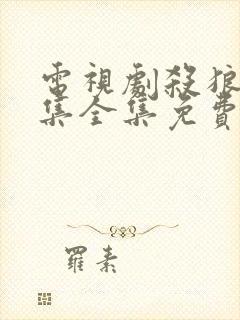 電視劇殺狼
集全集免費
羅素